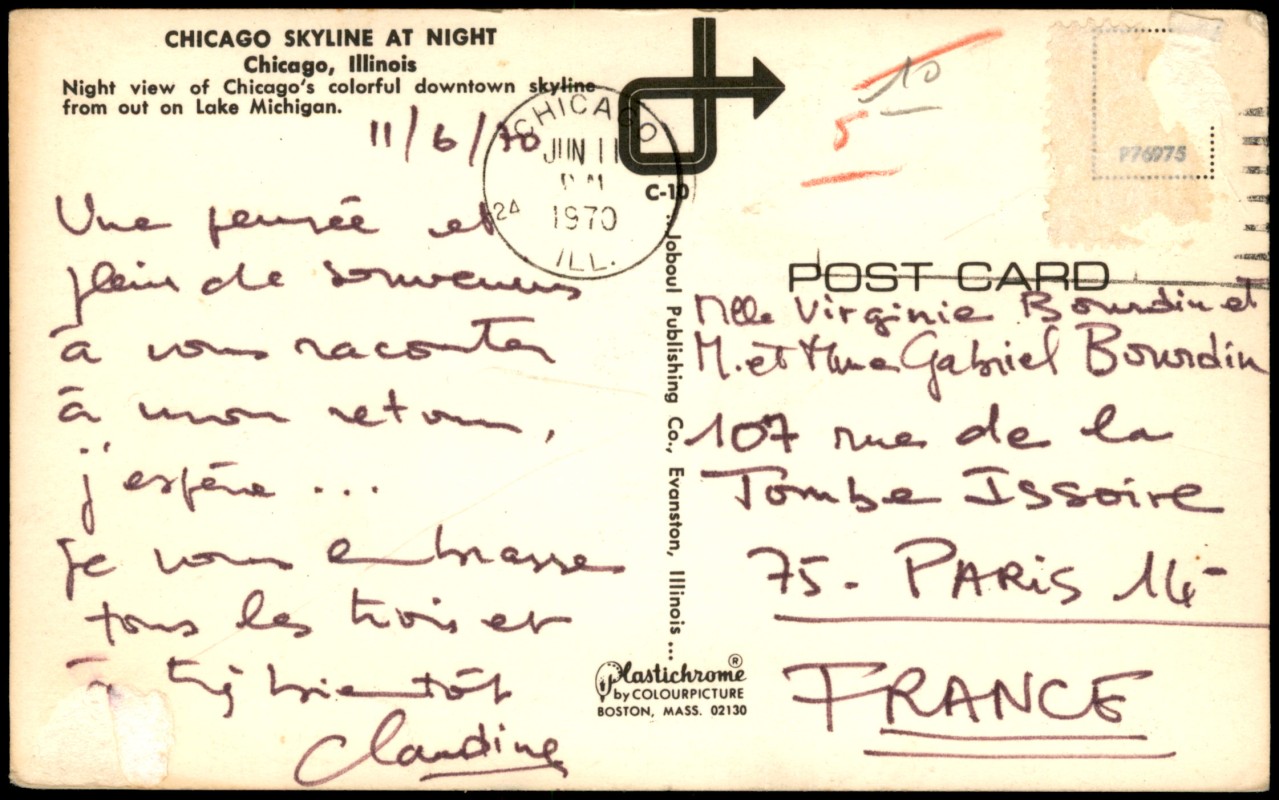 CHICAGO SKYLINE AT NIGHT
Chicago, Illinois
Night view of Chicago's colorful downtown skyline
from out on Lake Michigan.
11/6/70
CHICAGO
JUN 11
PM
24
1970
ILL.
C-10
10
5
P76975
Une pensée et
plein de souvenirs
à vous raconter
à mon retour,
j'espère ...
Je vous embrasse
tous les trois et
à trj bientôt
Claudine
...Joboul Publishing Co., Evanston, Illinois...
Plastichrome ®
by COLOURPICTURE
BOSTON, MASS. 02130
POST CARD
Mlle Virginie Bourdin et
M. et Mme Gabriel Bourdin
107 rue de la
Tombe Issoire
75. PARIS 14
FRANCE